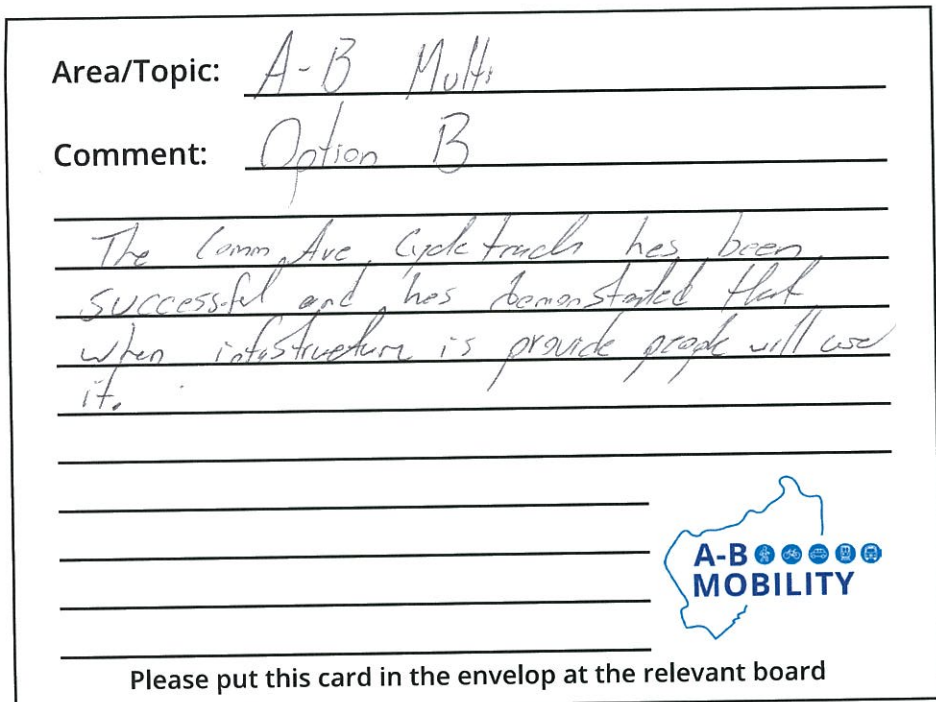 Area/Topic: A-B Multi
Comment: Option B
The Comm Ave Cycletrack hes been
successful and hes demonstarted that
when infustructure is provide people will use
it.
A-B
MOBILITY
Please put this card in the envelop at the relevant board